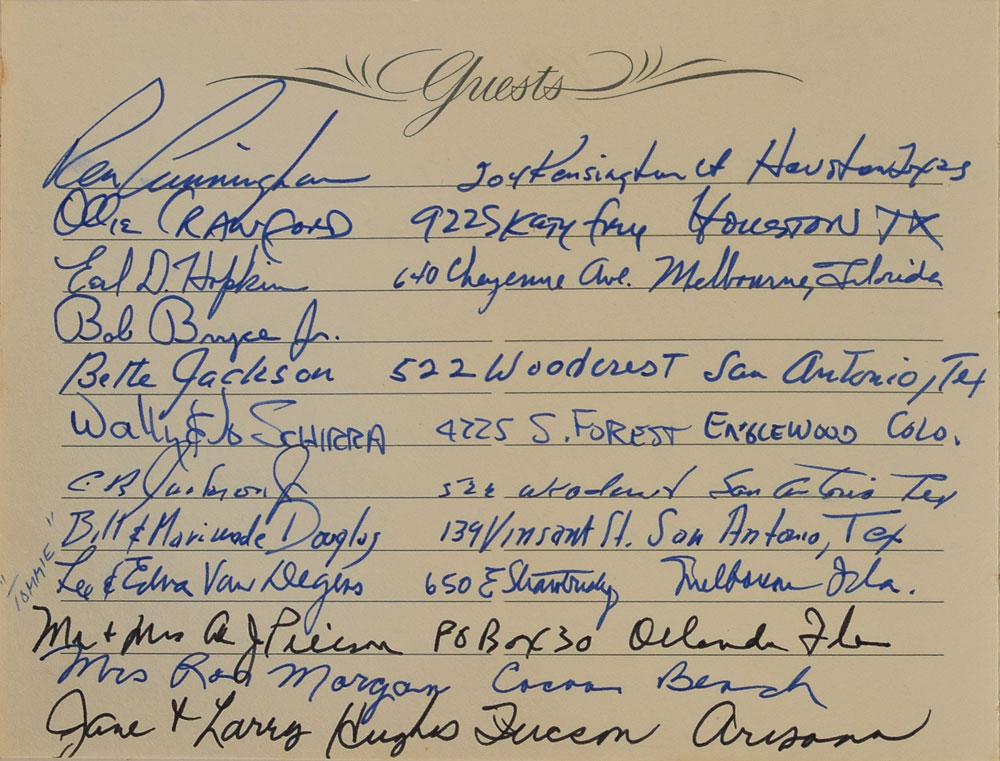 Guests
Cunningham 204 Kensington Ct Houston Texas
Ollie CRAWFORD 9225 Katy frwy HOUSTON TX
Earl D. Hopkin 640 Cheyenne Ave. Melbourne, Florida
Bob Bryce Jr.
Bette Jackson 522 Woodcrest San Antonio, Tex
Wally & Jo SCHIRRA 4225 S. FOREST ENGLEWOOD COLO.
C B Jackson Jr 522 Woodcrest San Antonio Tex
Bill & Mariwade Douglas 139 Vinsant St. San Antonio, Tex
"TOMMIE"
Lee & Edna Van 650 E Melbourne Fla.
Mr + Mrs A J Pierson PO Box 30 Orlando Fla
Mrs Rod Morgan Cocoa Beach
Jane & Larry Hughes Tucson Arizona